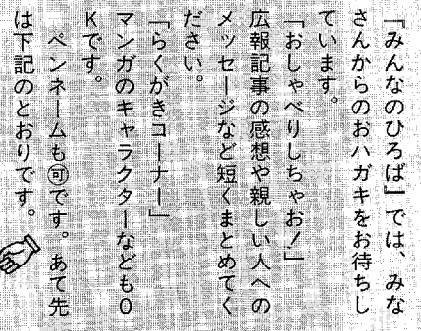 『みんなのひろば』では、みな
さんからのおハガキをお待ちし
ています。
「おしゃべりしちゃお!」
広報記事の感想や親しい人への
メッセージなど短くまとめてく
ださい。
「らくがきコーナー」
マンガのキャラクターなどもO
Kです。
ペンネームも㊢です。あて先
は下記のとおりです。